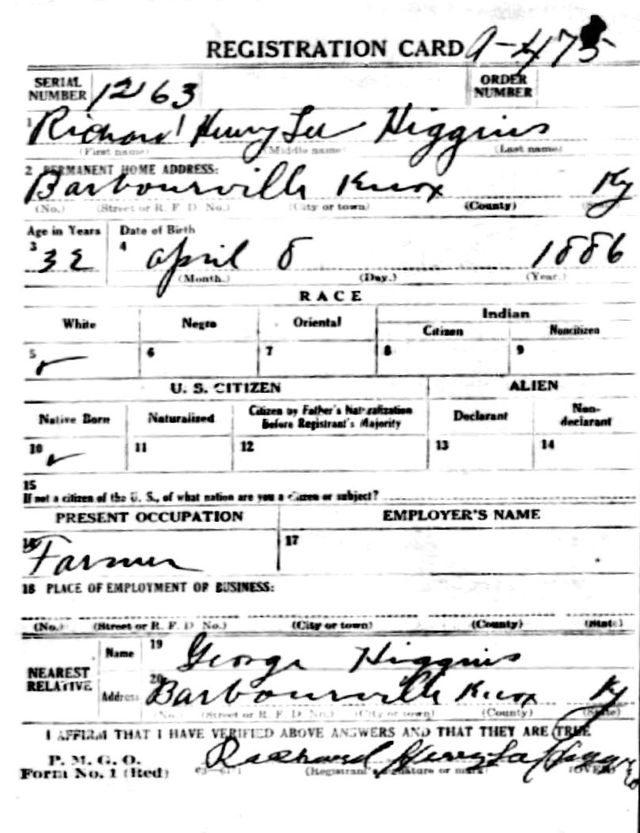 REGISTRATION CARD A-475
SERIAL NUMBER 1263 ORDER NUMBER
1 Richard Henry Lee Higgins
(First name) (Middle name) (Last name)
2 PERMANENT HOME ADDRESS:
Barbourville Knox Ky
(No.) (Street or R. F. D. No.) (City or town) (County)
Age in Years Date of Birth
3 32 4 April 8 1886
(Month.) (Day.) (Year.)
RACE
White Negro Oriental Indian
Citizen Noncitizen
5 ✓ 6 7 8 9
U. S. CITIZEN ALIEN
Native Born Naturalized Citizen by Father's Naturalization Before Registrant's Majority Declarant Non-declarant
10 ✓ 11 12 13 14
15
If not a citizen of the U. S., of what nation are you a citizen or subject?
PRESENT OCCUPATION EMPLOYER'S NAME
16 Farmer 17
18 PLACE OF EMPLOYMENT OF BUSINESS:
(No.) (Street or R. F. D. No.) (City or town) (County) (State)
NEAREST RELATIVE Name 19 George Higgins
Address 20 Barbourville Knox Ky
(No.) (Street or R. F. D. No.) (City or town) (County) (State)
I AFFIRM THAT I HAVE VERIFIED ABOVE ANSWERS AND THAT THEY ARE TRUE
P. M. G. O.
Form No. 1 (Red) Richard Henry Lee Higgins
(Registrant's signature or mark) (OVER)